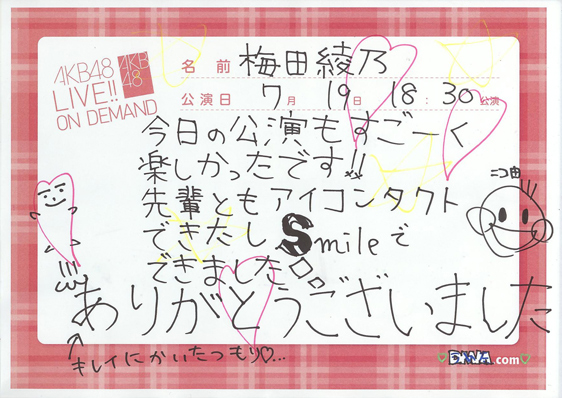 AKB48
LIVE!!
ON DEMAND
AKB
48
名前 梅田綾乃
公演日 7月 19日 18:30 公演
今日の公演もすごーく
楽しかったです!!
先輩ともアイコンタクト
できたし Smileで
できました
ありがとうございました
キレイにかいたつもり♡...
ニコ由
.com